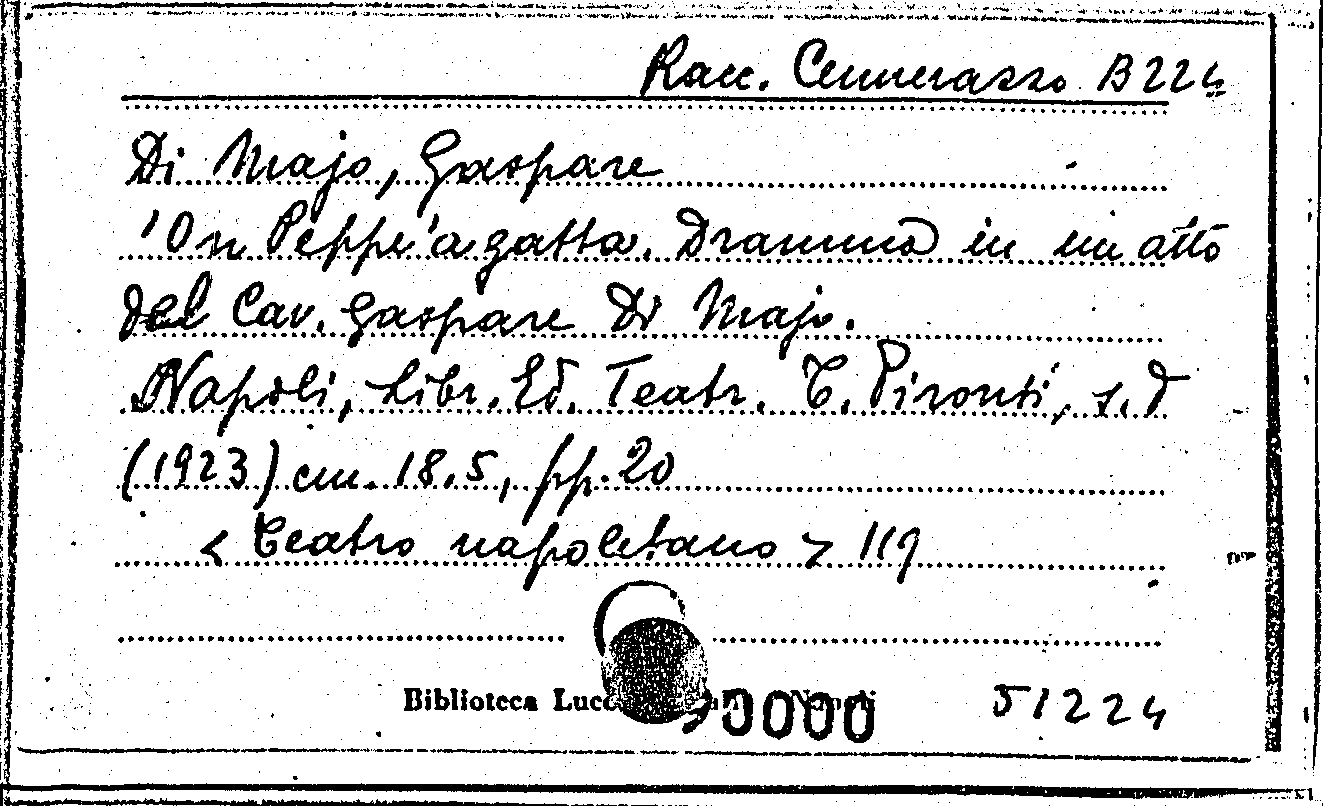 Racc. Cennerazzo B 224
Di Majo, Gaspare
'On Peppe 'a gatta. Dramma in un atto
del Cav. Gaspare Di Majo.
Napoli, Libr. Ed. Teatr. C. Pironti, s. d
(1923) cm. 18.5, pp. 20
< Teatro napoletano > 119
Biblioteca 0000 51224